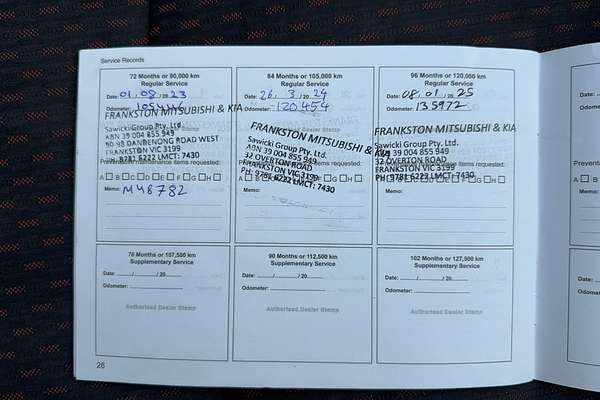 Service Records
72 Months or 90,000 km
Regular Service
Date: 01 . 08 . 20 23
Odometer:
FRANKSTON MITSUBISHI & KIA
Sawicki Group Pty. Ltd.
ABN 39 004 855 949
90-98 DANDENONG ROAD WEST
FRANKSTON VIC 3199
PH: 9781 6222 LMCT: 7430
maintenance items requested:
A B C D E F G H
Memo: M48782
84 Months or 105,000 km
Regular Service
Date: 26 . 3 / 20 24
Odometer: 120454
Authorised Dealer Stamp
FRANKSTON MITSUBISHI & KIA
Sawicki Group Pty. Ltd.
ABN 39 004 855 949
32 OVERTON ROAD
FRANKSTON VIC 3199
PH: 9781 6222 LMCT: 7430
items requested:
A B C D E F G H
Memo:
96 Months or 120,000 km
Regular Service
Date: 08 . 01 . 20 25
Odometer: 135972
FRANKSTON MITSUBISHI & KIA
Sawicki Group Pty. Ltd.
ABN 39 004 855 949
32 OVERTON ROAD
FRANKSTON VIC 3199
PH: 9781 6222 LMCT: 7430
items requested:
A B C D E F G H
Memo:
78 Months or 107,500 km
Supplementary Service
Date: ....../....../ 20......
Odometer:
Authorised Dealer Stamp
90 Months or 112,500 km
Supplementary Service
Date: ....../....../ 20......
Odometer:
Authorised Dealer Stamp
102 Months or 127,500 km
Supplementary Service
Date: ....../....../ 20......
Odometer:
Authorised Dealer Stamp
26
Date:
Odometer:
Prevent
A B
Memo:
Date:
Odometer: